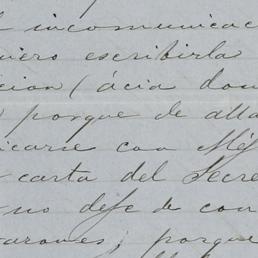 incomunicac
uiero escribirla
cion (ácia don
) porque de alla
icarse con Méj
carta del Secre
no defe de con
arones; porque